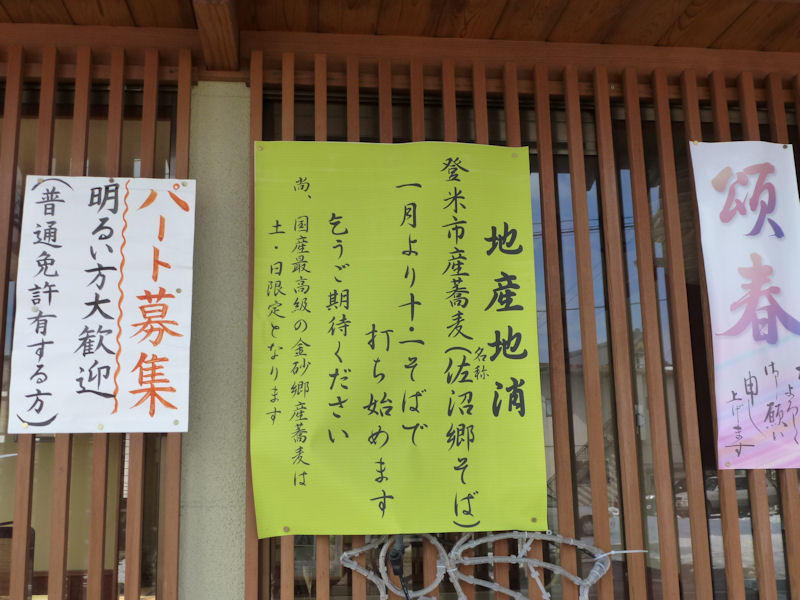 パート募集
明るい方大歓迎
(普通免許有する方)
地産地消
登米市産蕎麦(佐沼郷そば)
名称
一月より十・一そばで
打ち始めます
乞うご期待ください
尚、国産最高級の金砂郷産蕎麦は
土・日限定となります
頌春
よろしく
御願い
申し
上げます